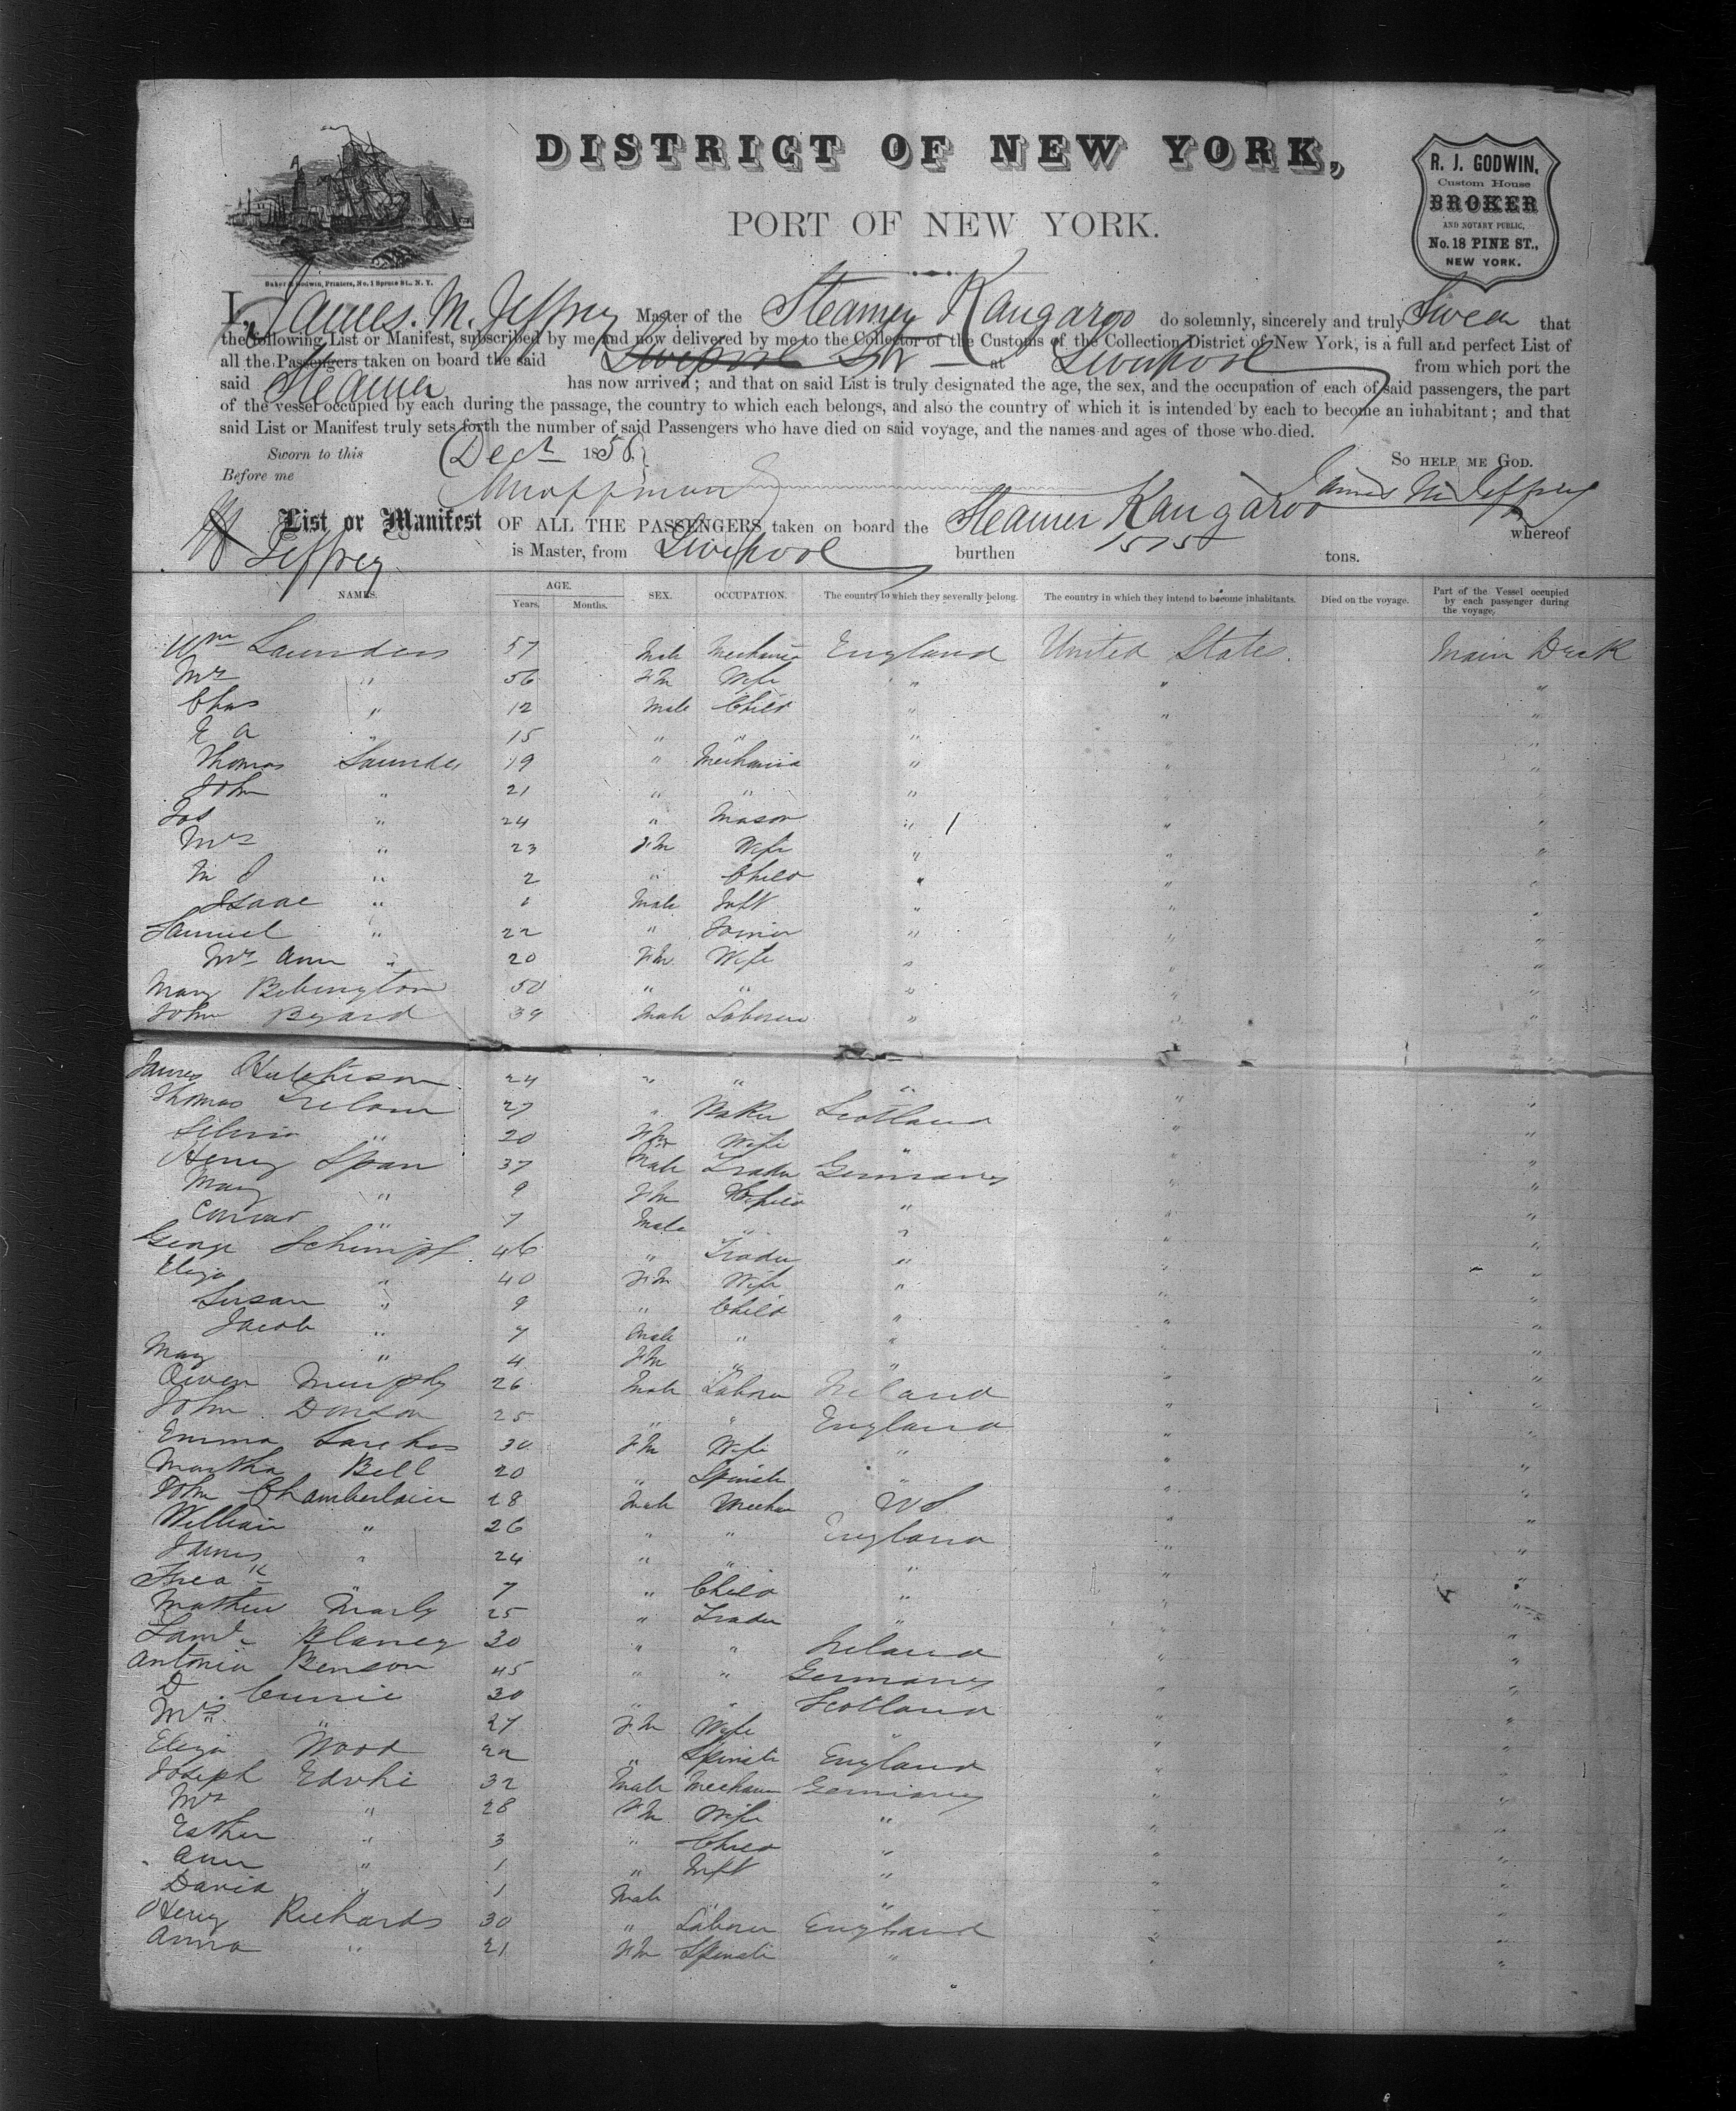 DISTRICT OF NEW YORK,
PORT OF NEW YORK.
R. J. GODWIN,
Custom House
BROKER
AND NOTARY PUBLIC,
No. 18 PINE ST.,
NEW YORK.
Baker & Godwin, Printers, No. 1 Spruce St., N. Y.
I, James. M. Jeffrey Master of the Steamer Kangaroo do solemnly, sincerely and truly Swear that
the following List or Manifest, subscribed by me and now delivered by me to the Collector of the Customs of the Collection District of New York, is a full and perfect List of
all the Passengers taken on board the said Liverpool Str at Liverpool from which port the
said Steamer has now arrived; and that on said List is truly designated the age, the sex, and the occupation of each of said passengers, the part
of the vessel occupied by each during the passage, the country to which each belongs, and also the country of which it is intended by each to become an inhabitant; and that
said List or Manifest truly sets forth the number of said Passengers who have died on said voyage, and the names and ages of those who died.
Sworn to this Decr 1858 SO HELP ME GOD.
Before me James M Jeffrey
List or Manifest OF ALL THE PASSENGERS taken on board the Steamer Kangaroo whereof
Jeffrey is Master, from Liverpool burthen 1575 tons.
NAMES. AGE. Years. Months. SEX. OCCUPATION. The country to which they severally belong. The country in which they intend to become inhabitants. Died on the voyage. Part of the Vessel occupied by each passenger during the voyage.
Wm Saunders 57 Male Mechanic England United States. Main Deck
Mrs " 56 Fm Wife " " "
Chas " 12 Male Child " " "
E a " 15 " " " " "
Thomas Saunders 19 " Mechanic " " "
John " 21 " " " " "
Jos " 24 " Mason " " "
Mrs " 23 Fm Wife " " "
M J " 2 " Child " " "
Isaac " 1 Male Inft " " "
Samuel " 22 " Joiner " " "
Mrs Ann " 20 Fm Wife " " "
Mary Bebington 50 " " " " "
John Byard 39 Male Laborer " " "
James Hutchison 24 " " " " "
Thomas 27 " Baker Scotland " "
" 20 Fm Wife " " "
Henry Span 37 Male Trader Germany " "
Mary " 9 Fm Child " " "
Conrad " 7 Male " " " "
George Schimpf 46 " Trader " " "
Eliza " 40 Fm Wife " " "
Susan " 9 " Child " " "
Jacob " 7 Male " " " "
May " 4 Fm " " " "
Owen Murphy 26 Male Laborer Ireland " "
John 25 " " England " "
Emma 30 Fm Wife " " "
Martha Bell 20 " Spinstr " " "
John Chamberlain 28 Male Mechan US " "
William " 26 " " England " "
James " 24 " " " " "
Fredk " 7 " Child " " "
Mathew 25 " Trader " " "
Saml Blaney 30 " " Ireland " "
Antonia Benson 45 " " Germany " "
D Currie 30 " " Scotland " "
Mrs " 27 Fm Wife " " "
Eliza Wood 22 " Spinstr England " "
Joseph 32 Male Mechan Germany " "
Mrs " 28 Fm Wife " " "
Esther " 3 " Child " " "
Ann " 1 " Inft " " "
David " 1 Male " " " "
Henry Richards 30 " Laborer England " "
Anna " 21 Fm Spinstr " " "